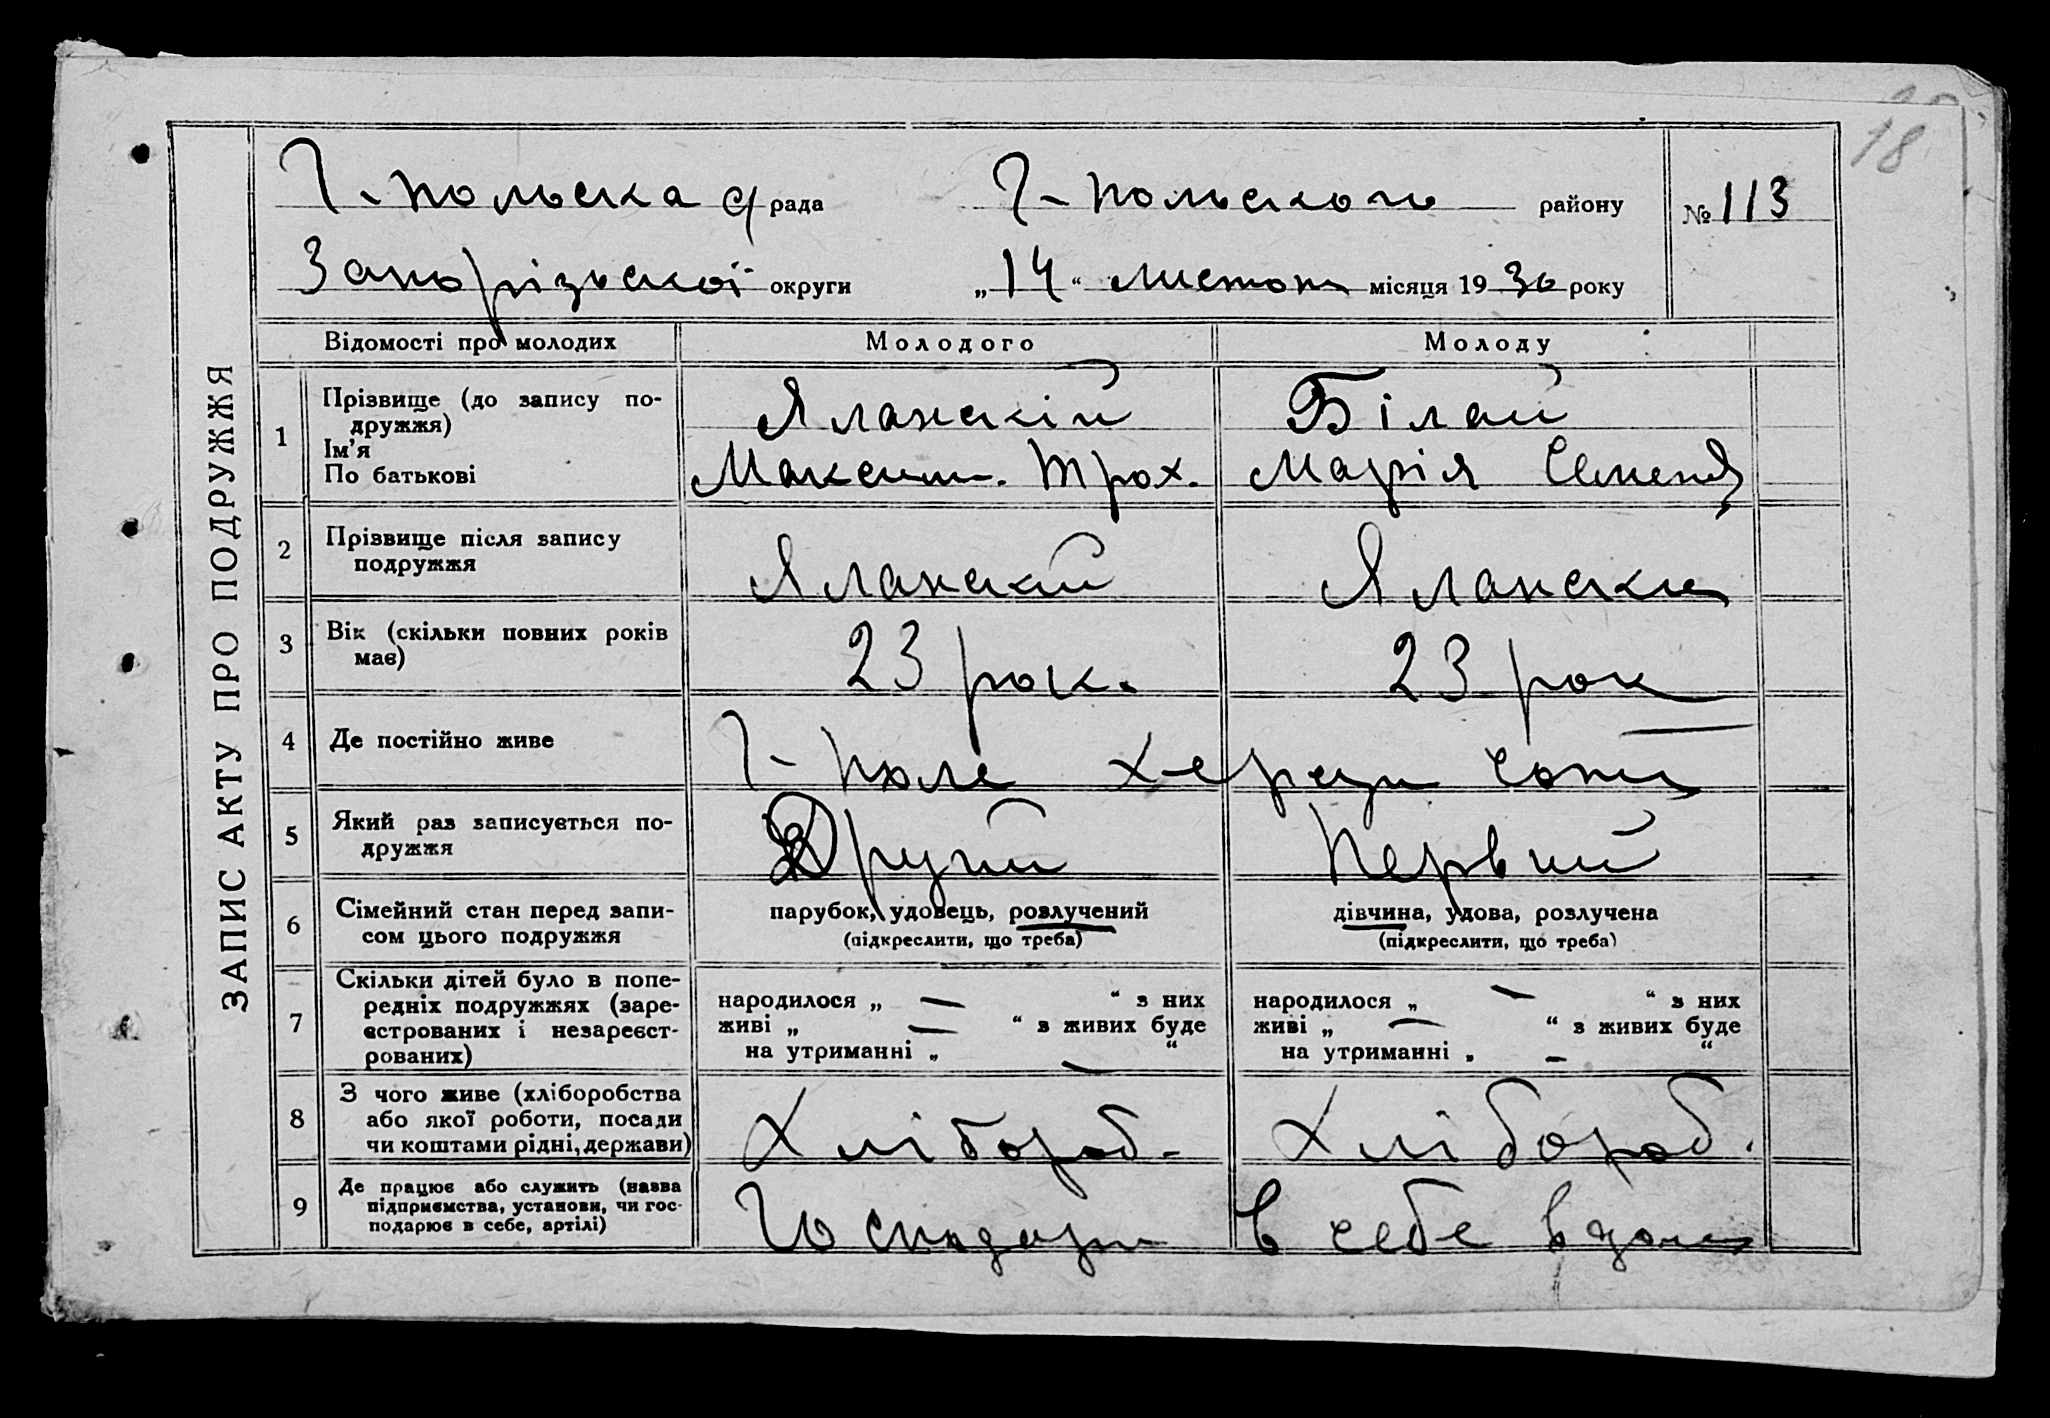 18
Г-польска с/рада Г-польского району №113
Запорізької округи „14“ листоп місяця 1930 року
ЗАПИС АКТУ ПРО ПОДРУЖЖЯ
Відомості про молодих Молодого Молоду
1 Прізвище (до запису по-
дружжя)
Ім'я
По батькові
Яланскій Білай
Максим. Трох. Марія Семен
2 Прізвище після запису
подружжя
Яланский Ялански
3 Вік (скільки повних років
має)
23 рок. 23 рок
4 Де постійно живе
Г-поле
5 Який раз записується по-
дружжя
Другий Первий
6 Сімейний стан перед запи-
сом цього подружжя
парубок, удовець, розлучений дівчина, удова, розлучена
(підкреслити, що треба) (підкреслити, що треба)
7 Скільки дітей було в попе-
редніх подружжях (заре-
єстрованих і незареєст-
рованих)
народилося „ — “ з них народилося „ — “ з них
живі „ — “ з живих буде живі „ — “ з живих буде
на утриманні „ — “ на утриманні „ — “
8 З чого живе (хліборобства
або якої роботи, посади
чи коштами рідні, держави)
Хлібороб. Хлібороб.
9 Де працює або служить (назва
підприємства, установи, чи гос-
подарює в себе, артілі)
Господари в себе вдома